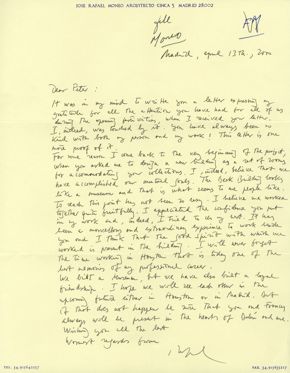 JOSE RAFAEL MONEO ARQUITECTO CINCA 5 MADRID 28002
file
Moneo
Madrid, april 13th, 2000
Dear Peter:
It was in my mind to write you a letter expressing my
gratitude for all the attention you have had for all of us
during the opening festivities, when I received your letter.
I, indeed, was touched by it. You have always been so
kind with both my person and my work: This letter is one
more proof of it.
For some reason I come back to the very beginning of the project,
when you asked me to design a building as a set of rooms
for accommodating your collections. I, indeed, believe that we
have accomplished our mutual goals. The Beck Building looks
like a museum and that is what seems to me people like.
To reach this point has not been so easy. I believe we worked
together quite fruitfully. I appreciated the confidence you put
in my work and, indeed, I tried to do my best. It has
been a marvellous and extraordinary experience to work beside
you and I think that the good spirit with which we
worked is present in the building. I will never forget
the time working in Houston that is today one of the
best memories of my professional career.
We built a museum but we have also built a loyal
friendship. I hope we will see each other in the
upcoming future either in Houston or in Madrid. But
if that does not happen be sure that you and
always will be present in the hearts of Belén and me.
Wishing you all the best
Warmest regards from